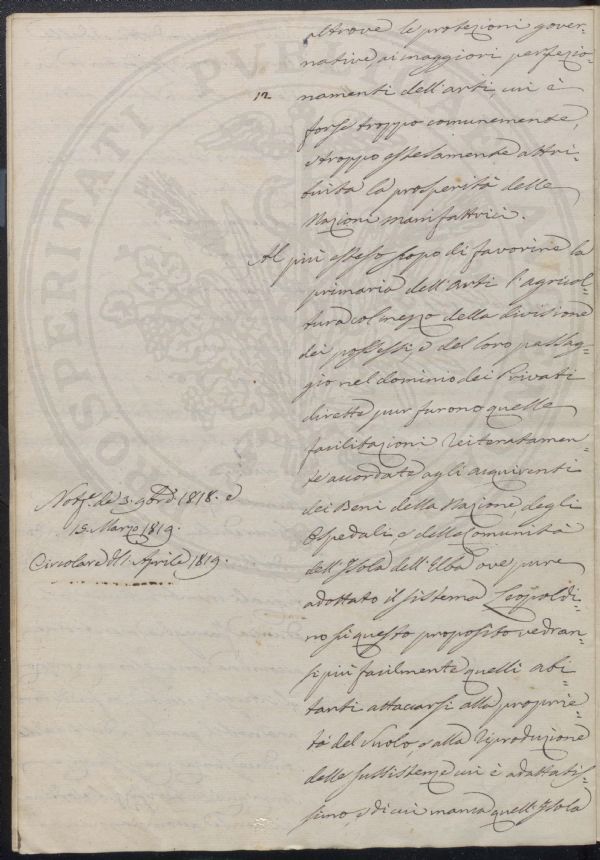 altrove le protezioni gover-
native ai maggiori perfezio-
12
namenti dell'arti, cui è
forse troppo comunemente,
e troppo estesamente attri-
buita la prosperità delle
Nazioni manifattrici.
Al più esteso scopo di favorire la
primaria dell'Arti l'agricol-
tura col mezzo della divisione
dei possessi, e del loro passag-
gio nel dominio dei Privati
dirette pur furono quelle
facilitazioni reiteratamen-
te accordate agli acquirenti
dei Beni della Nazione, degli
Ospedali, e delle Comunità
dell'Isola dell'Elba ove pure
adottato il sistema Leopoldi-
no si questo proposito vedran-
si più facilmente quelli abi-
tanti attaccarsi alla proprie-
tà del suolo, e alla riproduzione
delle sussistenze cui è adattatis-
simo, e di cui manca quell'Isola
Notf.e de' 3. 9bre 1818. e
15. Marzo 1819.
Circolare del 1. Aprile 1819.
PROSPERITATI PVBLICAE